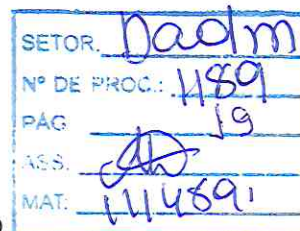 SETOR. Dadm
Nº DE PROC.: 1189
PÁG 19
ASS.
MAT: 1114891